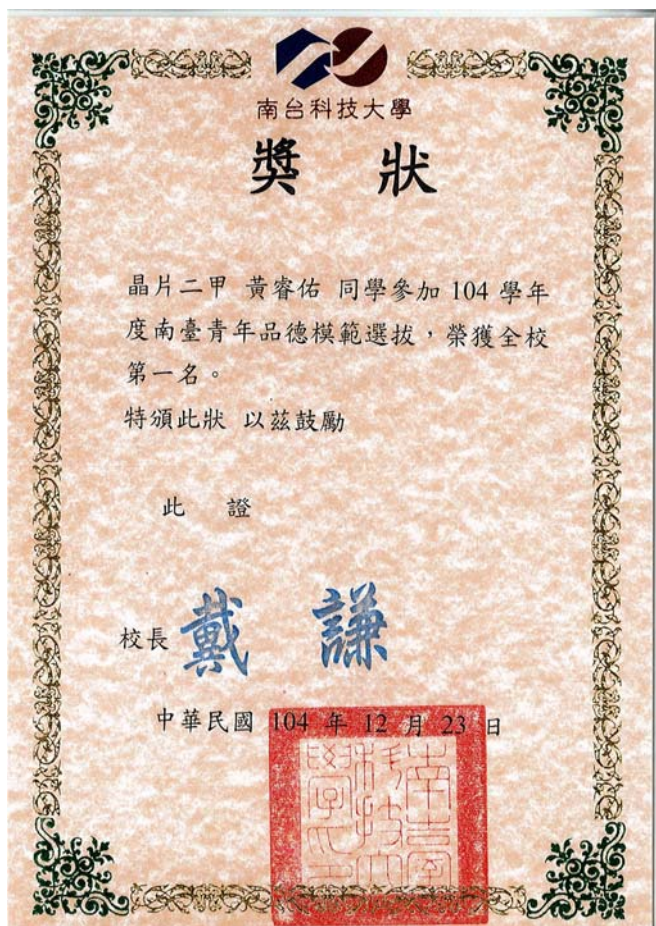 南台科技大學
獎 狀
晶片二甲 黃睿佑 同學參加 104 學年
度南臺青年品德模範選拔，榮獲全校
第一名。
特頒此狀 以茲鼓勵
此 證
校長 戴 謙
中華民國 104 年 12 月 23 日
南臺科技大學之印